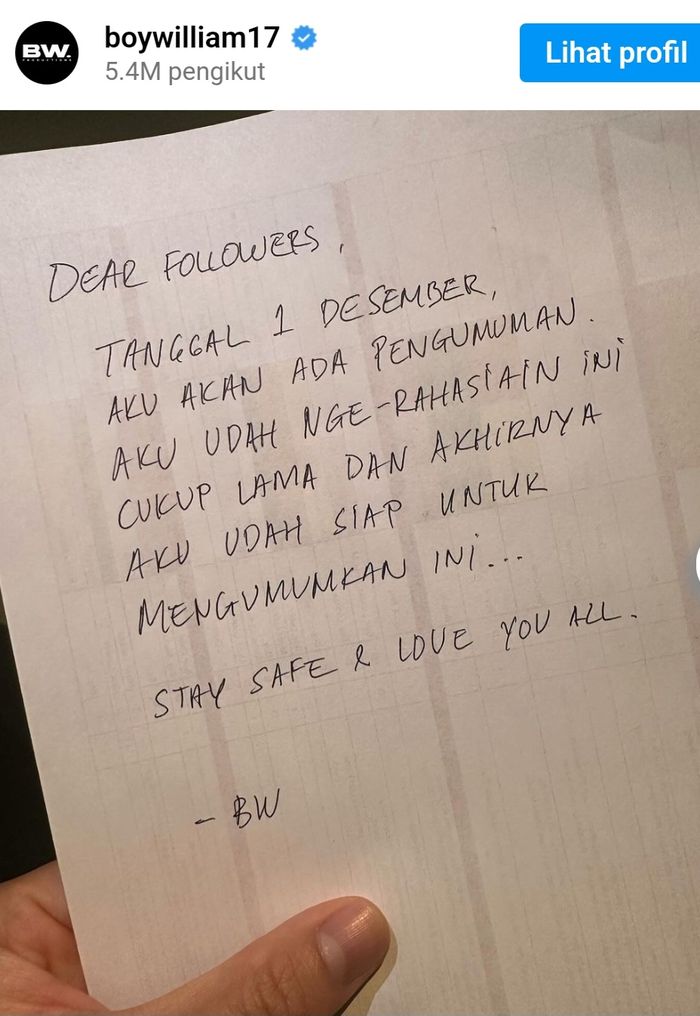 BW.
PRODUCTIONS
boywilliam17
5.4M pengikut
Lihat profil
DEAR FOLLOWERS,
TANGGAL 1 DESEMBER,
AKU AKAN ADA PENGUMUMAN.
AKU UDAH NGE-RAHASIAIN INI
CUKUP LAMA DAN AKHIRNYA
AKU UDAH SIAP UNTUK
MENGUMUMKAN INI...
STAY SAFE & LOVE YOU ALL.
- BW